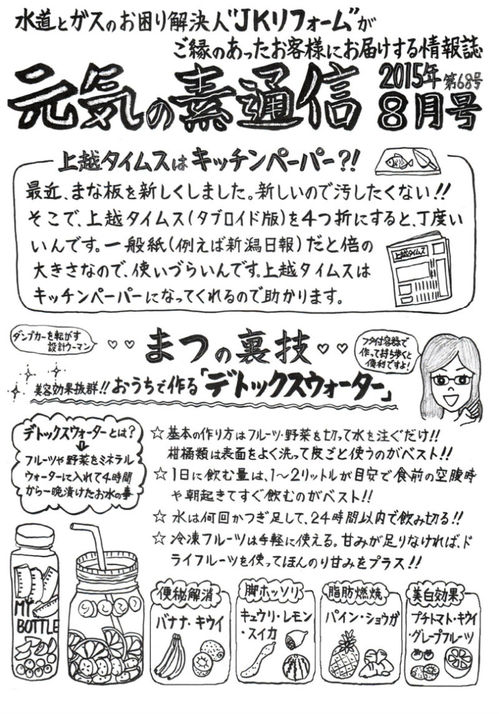 水道とガスのお困り解決人"JKリフォーム"が
ご縁のあったお客様にお届けする情報誌
元気の素通信
2015年 第68号
8月号
上越タイムスはキッチンペーパー?!
最近、まな板を新しくしました。新しいので汚したくない!!
そこで、上越タイムス(タブロイド版)を4つ折にすると、丁度い
いんです。一般紙(例えば新潟日報)だと倍の
大きさなので、使いづらいんです。上越タイムスは
キッチンペーパーになってくれるので助かります。
上越タイムス
ダンプカーを転がす
設計ウーマン
♡♡ まつの裏技 ♡♡
フタ付容器で
作って持ち歩くと
便利ですよ!
美容効果抜群!!おうちで作る「デトックスウォーター」
デトックスウォーターとは?
⇓
フルーツや野菜をミネラル
ウォーターに入れて4時間
から一晩漬けたお水の事
☆基本の作り方はフルーツ・野菜を切って水を注ぐだけ!!
柑橘類は表面をよく洗って皮ごと使うのがベスト!!
☆1日に飲む量は、1〜2リットルが目安で食前の空腹時
や朝起きてすぐ飲むのがベスト!!
☆水は何回かつぎ足して、24時間以内で飲み切る!!
☆冷凍フルーツは手軽に使える。甘みが足りなければ、ド
ライフルーツを使ってほんのり甘みをプラス!!
MY
BOTTLE
便秘解消
バナナ・キウイ
脚ホッソリ
キュウリ・レモン
・スイカ
脂肪燃焼
パイン・ショウガ
美白効果
プチトマト・キウイ
グレープフルーツ